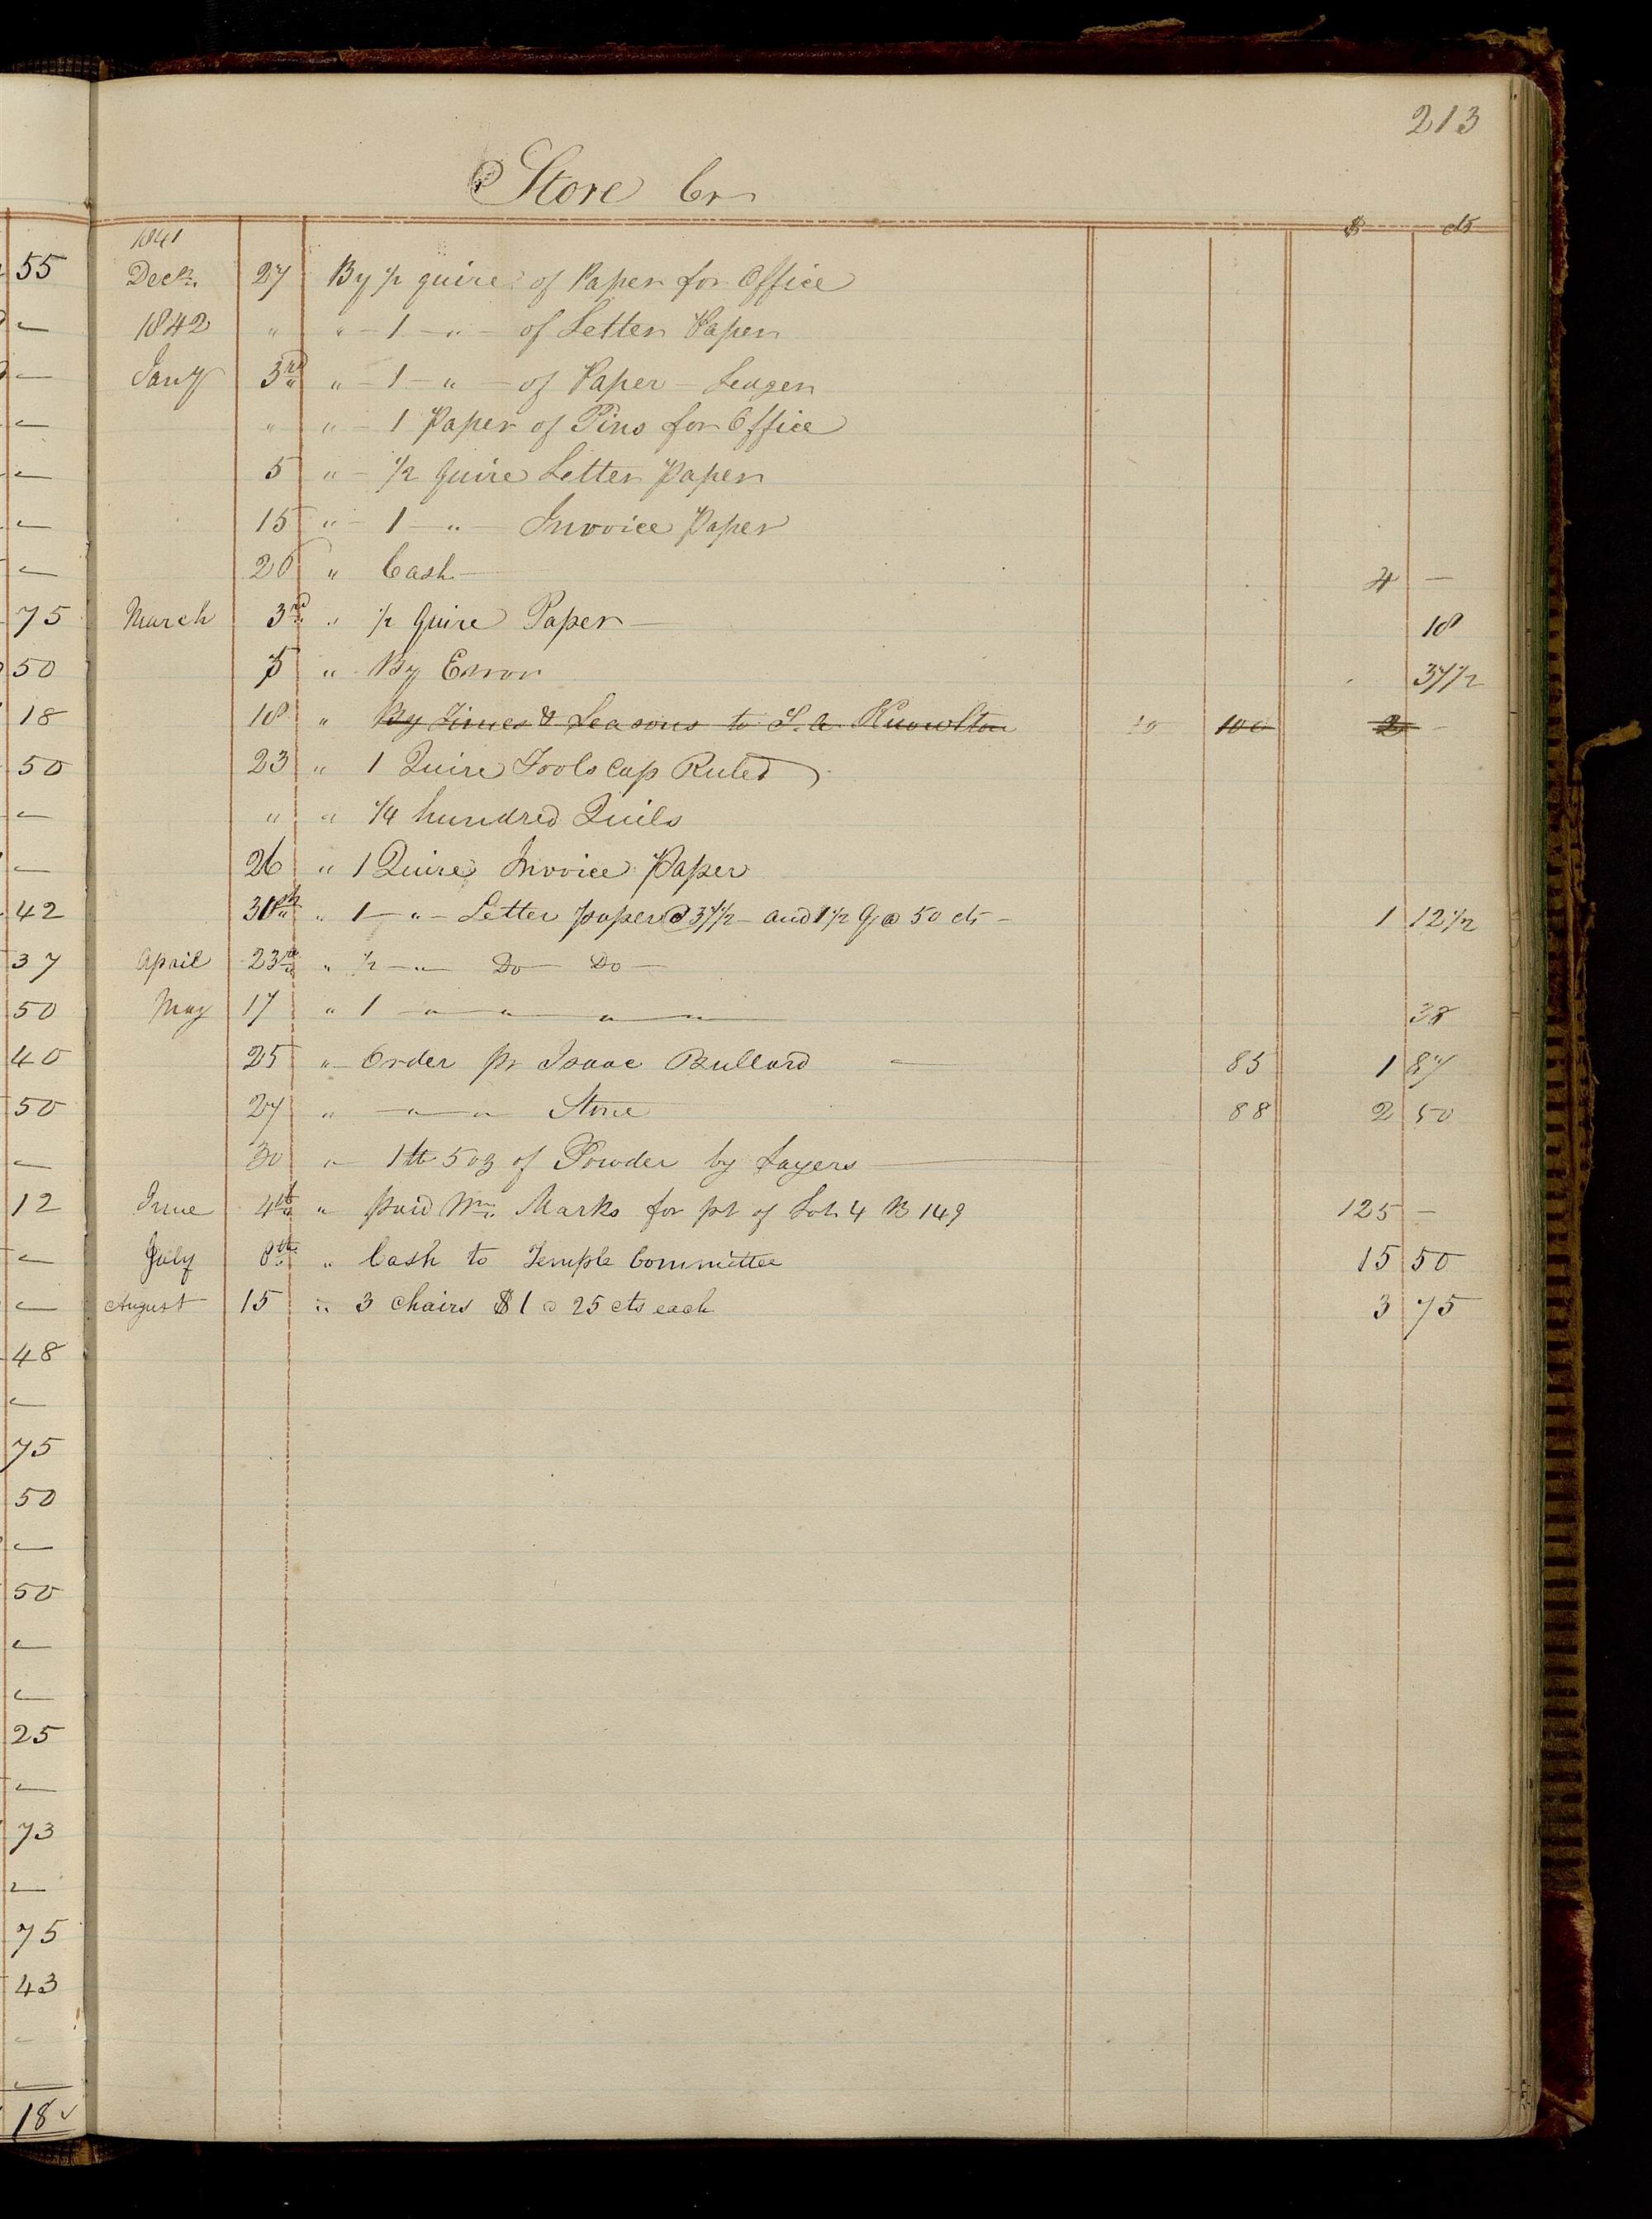 213
Store Cr
$ cts
1841
Decr. 27 By ½ quire of Paper for Office
1842 " " — 1 — " — of Letter Paper
Jany 3rd " — 1 — " — of Paper — Leager
" " — 1 Paper of Pins for Office
5 " — ½ Quire Letter Paper
15 " — 1 — " — Invoice Paper
20 " Cash — 4 —
March 3rd " ½ Quire Paper — 18
5 " By Error 37½
18 " By Times & Seasons to S. A. Knowlton 100 2 —
23 " 1 Quire Fools Cap Ruled
" " ¼ hundred Quils
26 " 1 Quire Invoice Paper
" 1 — " — Letter paper @ 37½ — and 1½ Q @ 50 cts — 1 12½
Apail 23rd " ½ — " — Do — Do —
May 17 " 1 — " — " — " — " — 38
25 " — Order pr Isaac Bullard — 85 1 87
27 " — " — " Stone 88 2 50
30 " — 1 lb 5 oz of Powder by Sayers —
June 4th " paid Wm. Marks for pt of Lot. 4 B 149 125 —
July 8th " Cash to Temple Committee 15 50
August 15 " 3 Chairs $1 @ 25 cts each 3 75
55
—
—
—
—
—
—
75
50
18
50
—
—
42
37
50
40
50
—
12
—
—
48
—
75
50
—
50
—
—
25
—
73
—
75
43
—
—
18